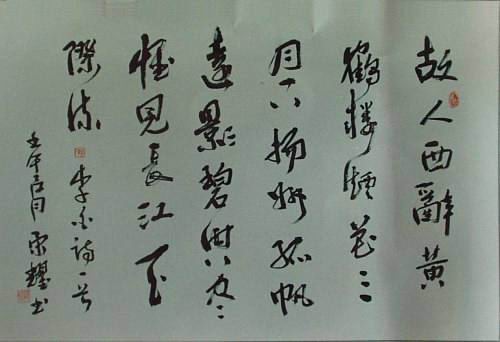 故人西辭黃
鶴樓煙花三
月下揚州孤帆
遠影碧空尽
惟見長江天
際流 李白詩一首
壬午月書